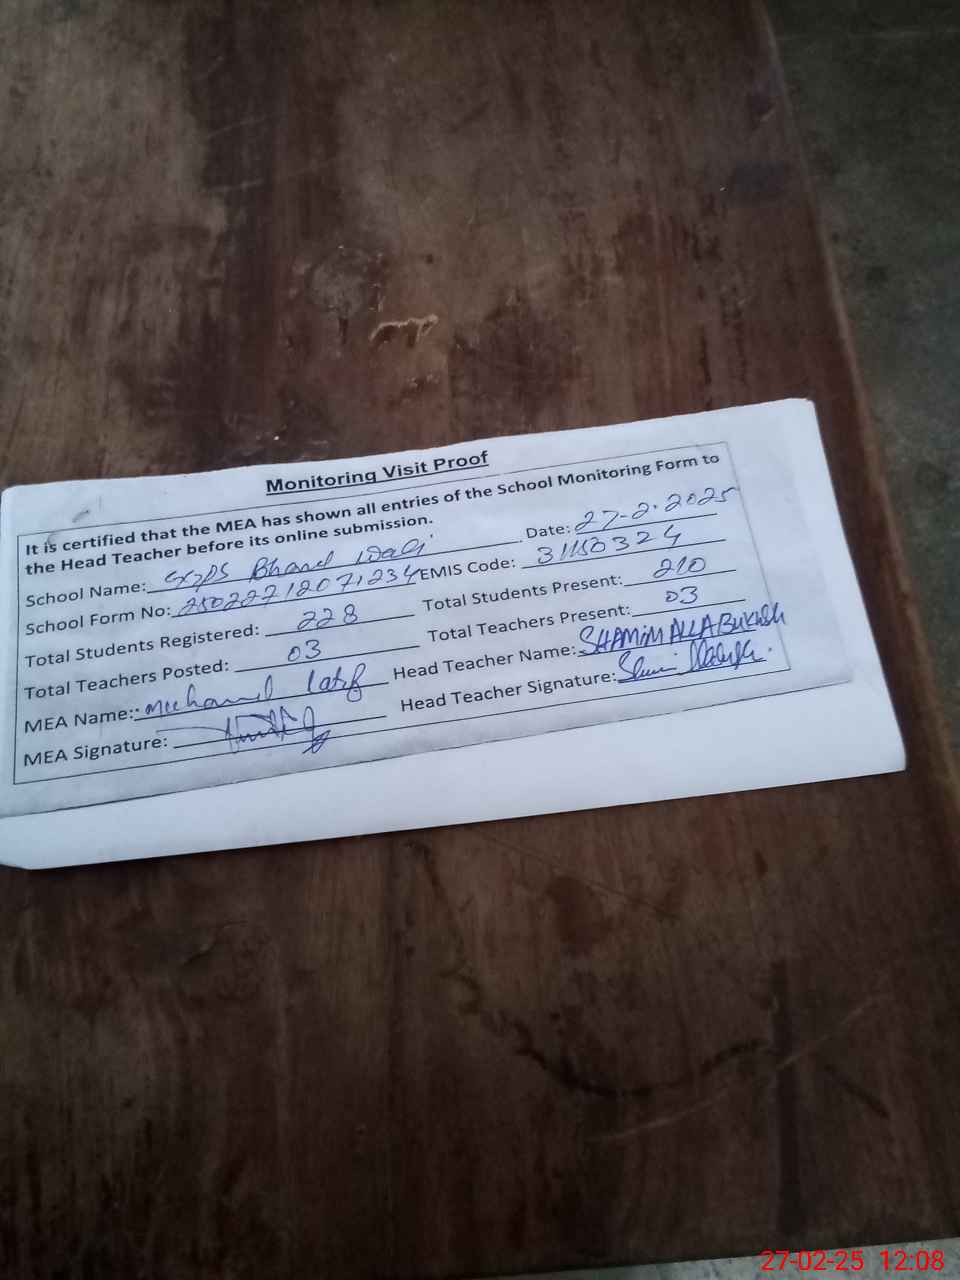 Monitoring Visit Proof
It is certified that the MEA has shown all entries of the School Monitoring Form to
the Head Teacher before its online submission.
School Name: GGPS Bhand Wali Date: 27-2-2025
School Form No: 25022712071234 EMIS Code: 31150324
Total Students Registered: 228 Total Students Present: 210
Total Teachers Posted: 03 Total Teachers Present: 03
MEA Name: Muhamd latif Head Teacher Name: SHAMIM ALLA BUKHSH
MEA Signature: Head Teacher Signature:
27-02-25 12:08